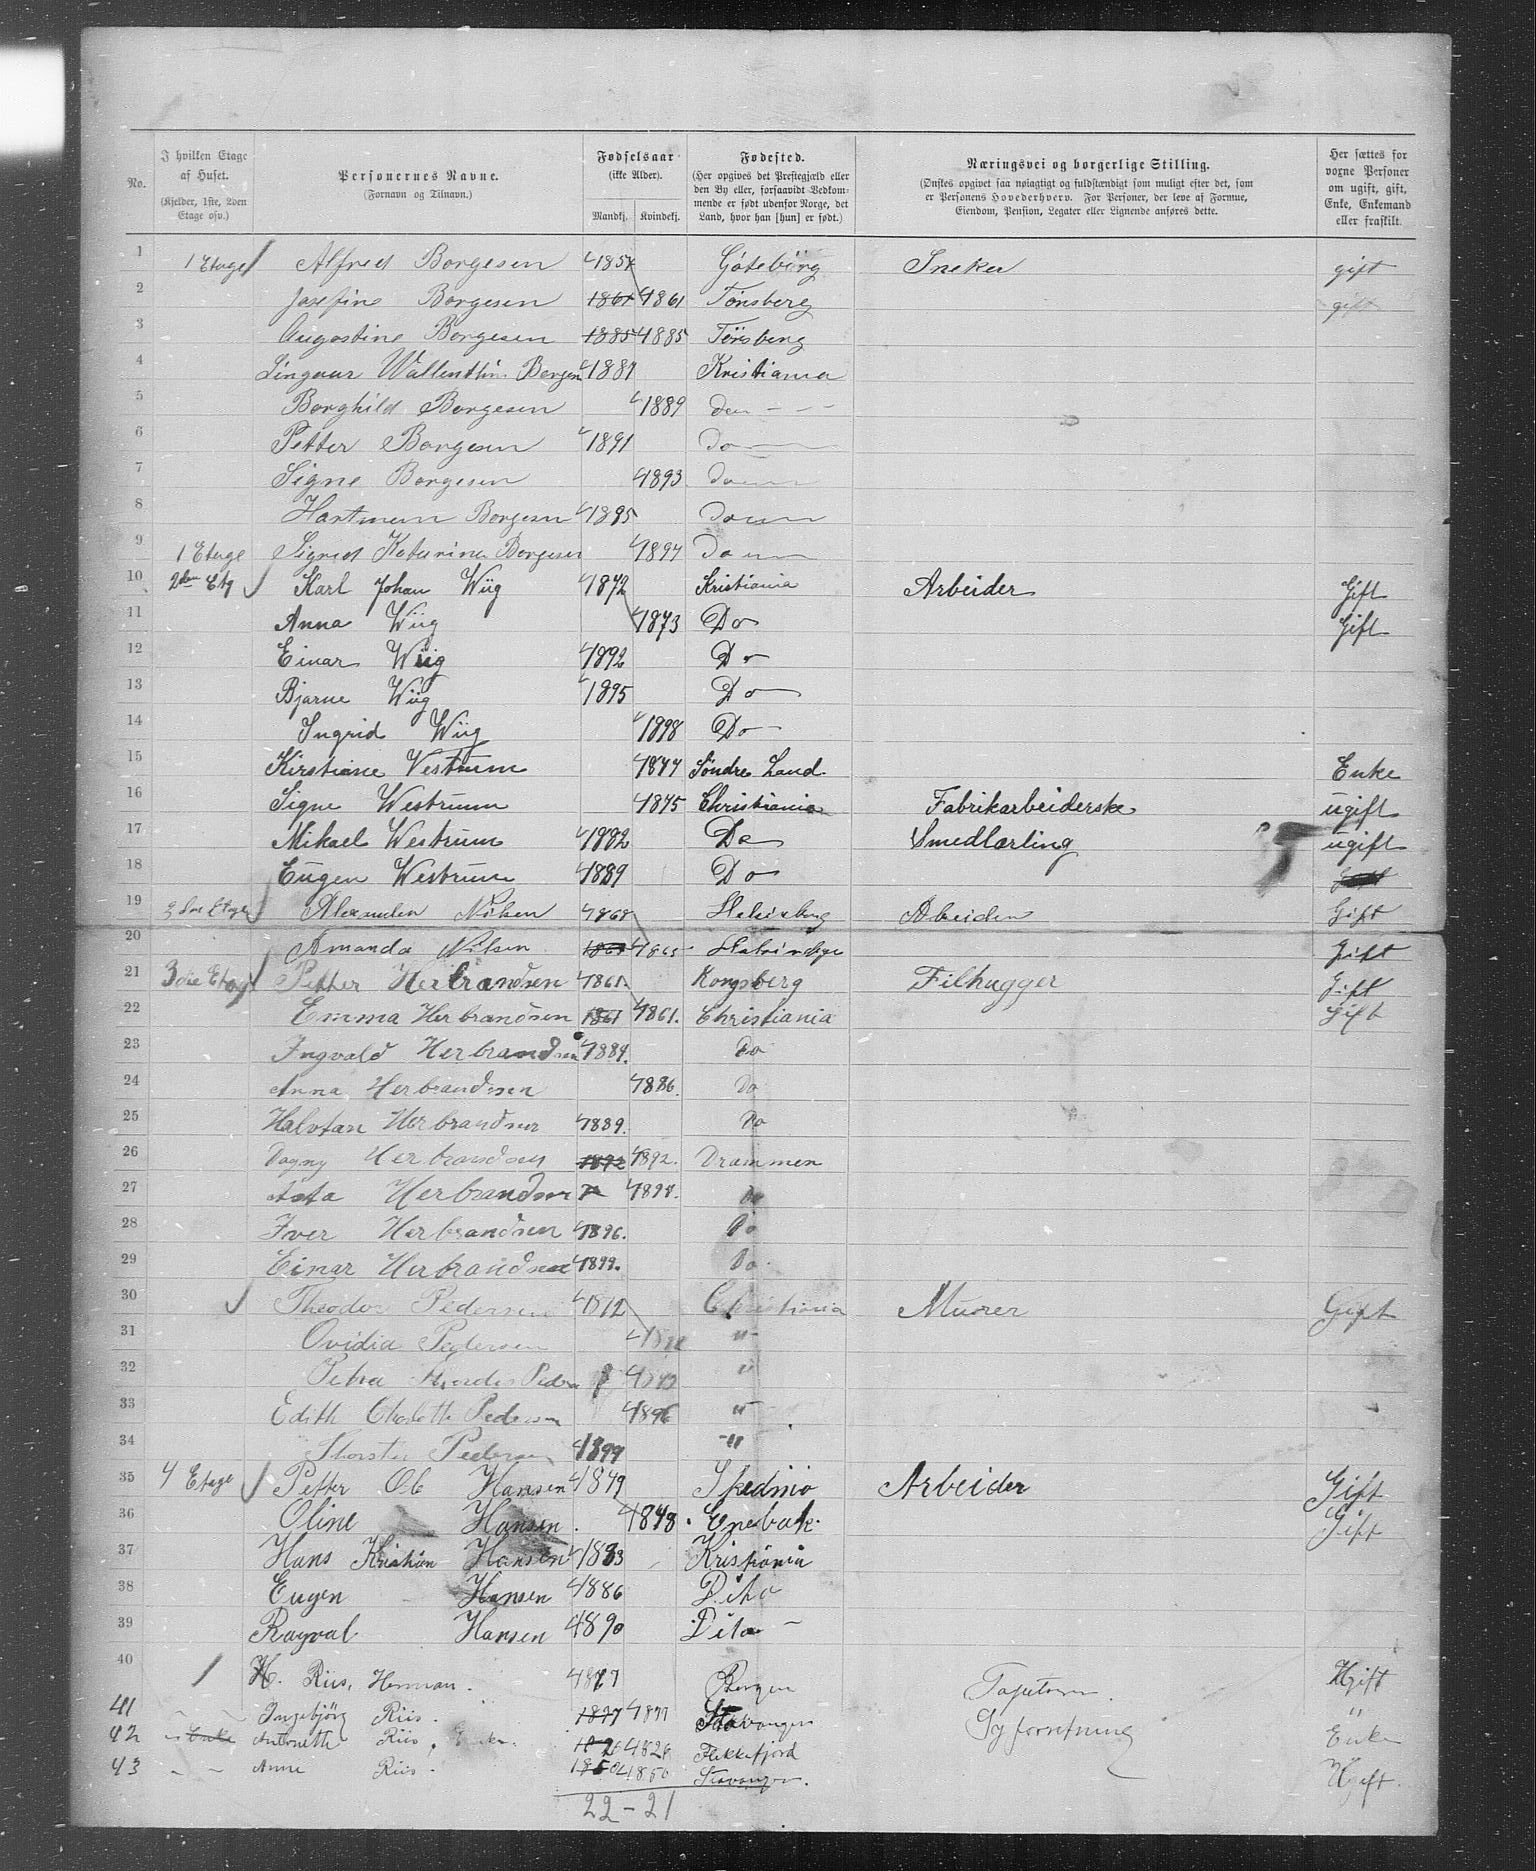 No.
I hvilken Etage af Huset.
(Kjelder, 1ste, 2den Etage osv.)
Personernes Navne.
(Fornavn og Tilnavn.)
Fødselsaar
(ikke Alder).
Mandkj. Kvindekj.
Fødested.
(Her opgives det Prestegjæld eller den By eller, forsaavidt Vedkommende er født udenfor Norge, det Land, hvor han [hun] er født.)
Næringsvei og borgerlige Stilling.
(Ønskes opgivet saa nøiagtigt og fuldstændigt som muligt efter det, som er Personens Hovederhverv. For Personer, der leve af Formue, Eiendom, Pension, Legater eller Lignende anføres dette.
Her sættes for voxne Personer om ugift, gift, Enke, Enkemand eller fraskilt.
1 1 Etage Alfred Borgesen Götebörg Sneker gift
2 Josefine Borgesen 1861 1861 Tönsberg gift
3 Augostine Borgesen 1885 1885 Tönsberg
4 Wallenthin 1887 Kristiania
5 Borghild Borgesen 1889
6 Petter Borgesen 1891 Do
7 Signe Borgesen 1893
8 Hartmann Borgesen 1895
9 1 Etage Sigrid Katarina Borgesen 1897
10 2den Etg Karl Johan Wiig 1872 Kristiania Arbeider Gift
11 Anna Wiig 1873 Do Gift
12 Einar Wiig 1892 Do
13 Bjarne Wiig 1895 Do
14 Ingrid Wiig 1898 Do
15 Kirstiane Vestrum Söndre Land Enke
16 Signe Westrum 1875 Christiania Fabrikarbeiderske ugift
17 Mikael Westrum 1882 Do Smedlærling ugift
18 Eugen Westrum 1889 Do
19 Alexander Nilsen 1868 Arbeider Gift
20 Amanda Nilsen 1865 Gift
21 3die Etage Petter Herbrandsen 1861 Kongsberg Filhugger Gift
22 Emma Herbrandsen 1861 1861. Christiania Gift
23 Ingvald Herbrandsen 1884. Do
24 Anna Herbrandsen 1886. Do
25 Halvtan Herbrandsen 1889. Do
26 Dagny Herbrandsen 1892 1892. Drammen
27 Asta Herbrandsen Do
28 Iver Herbrandsen 1896. Do
29 Einar Herbrandsen 1899. Do
30 Theodor Pedersen 1872 Christiania Murer Gift
31 Ovidia Pedersen "
32 Petra "
33 Edith Pedersen 1896 "
34 Pedersen 1899 "
35 4 Etage Petter Ole Hansen 1849 Skedsmo Arbeider Gift
36 Oline Hansen. 1848. Enebak. Gift
37 Hans Kristian Hansen 1883 Kristiania
38 Eugen Hansen 1886 Dito
39 Ragval Hansen 1890 Dito
40 H. Riis, Herman. Bergen Ugift
41 Ingebjörg Riis. 1877 1877 Stavanger "
42 Antonette Riis, Enke. Flekkefjord Enke
43 Anne Riis. 1850 1850 Stavanger. Ugift.
22 - 21